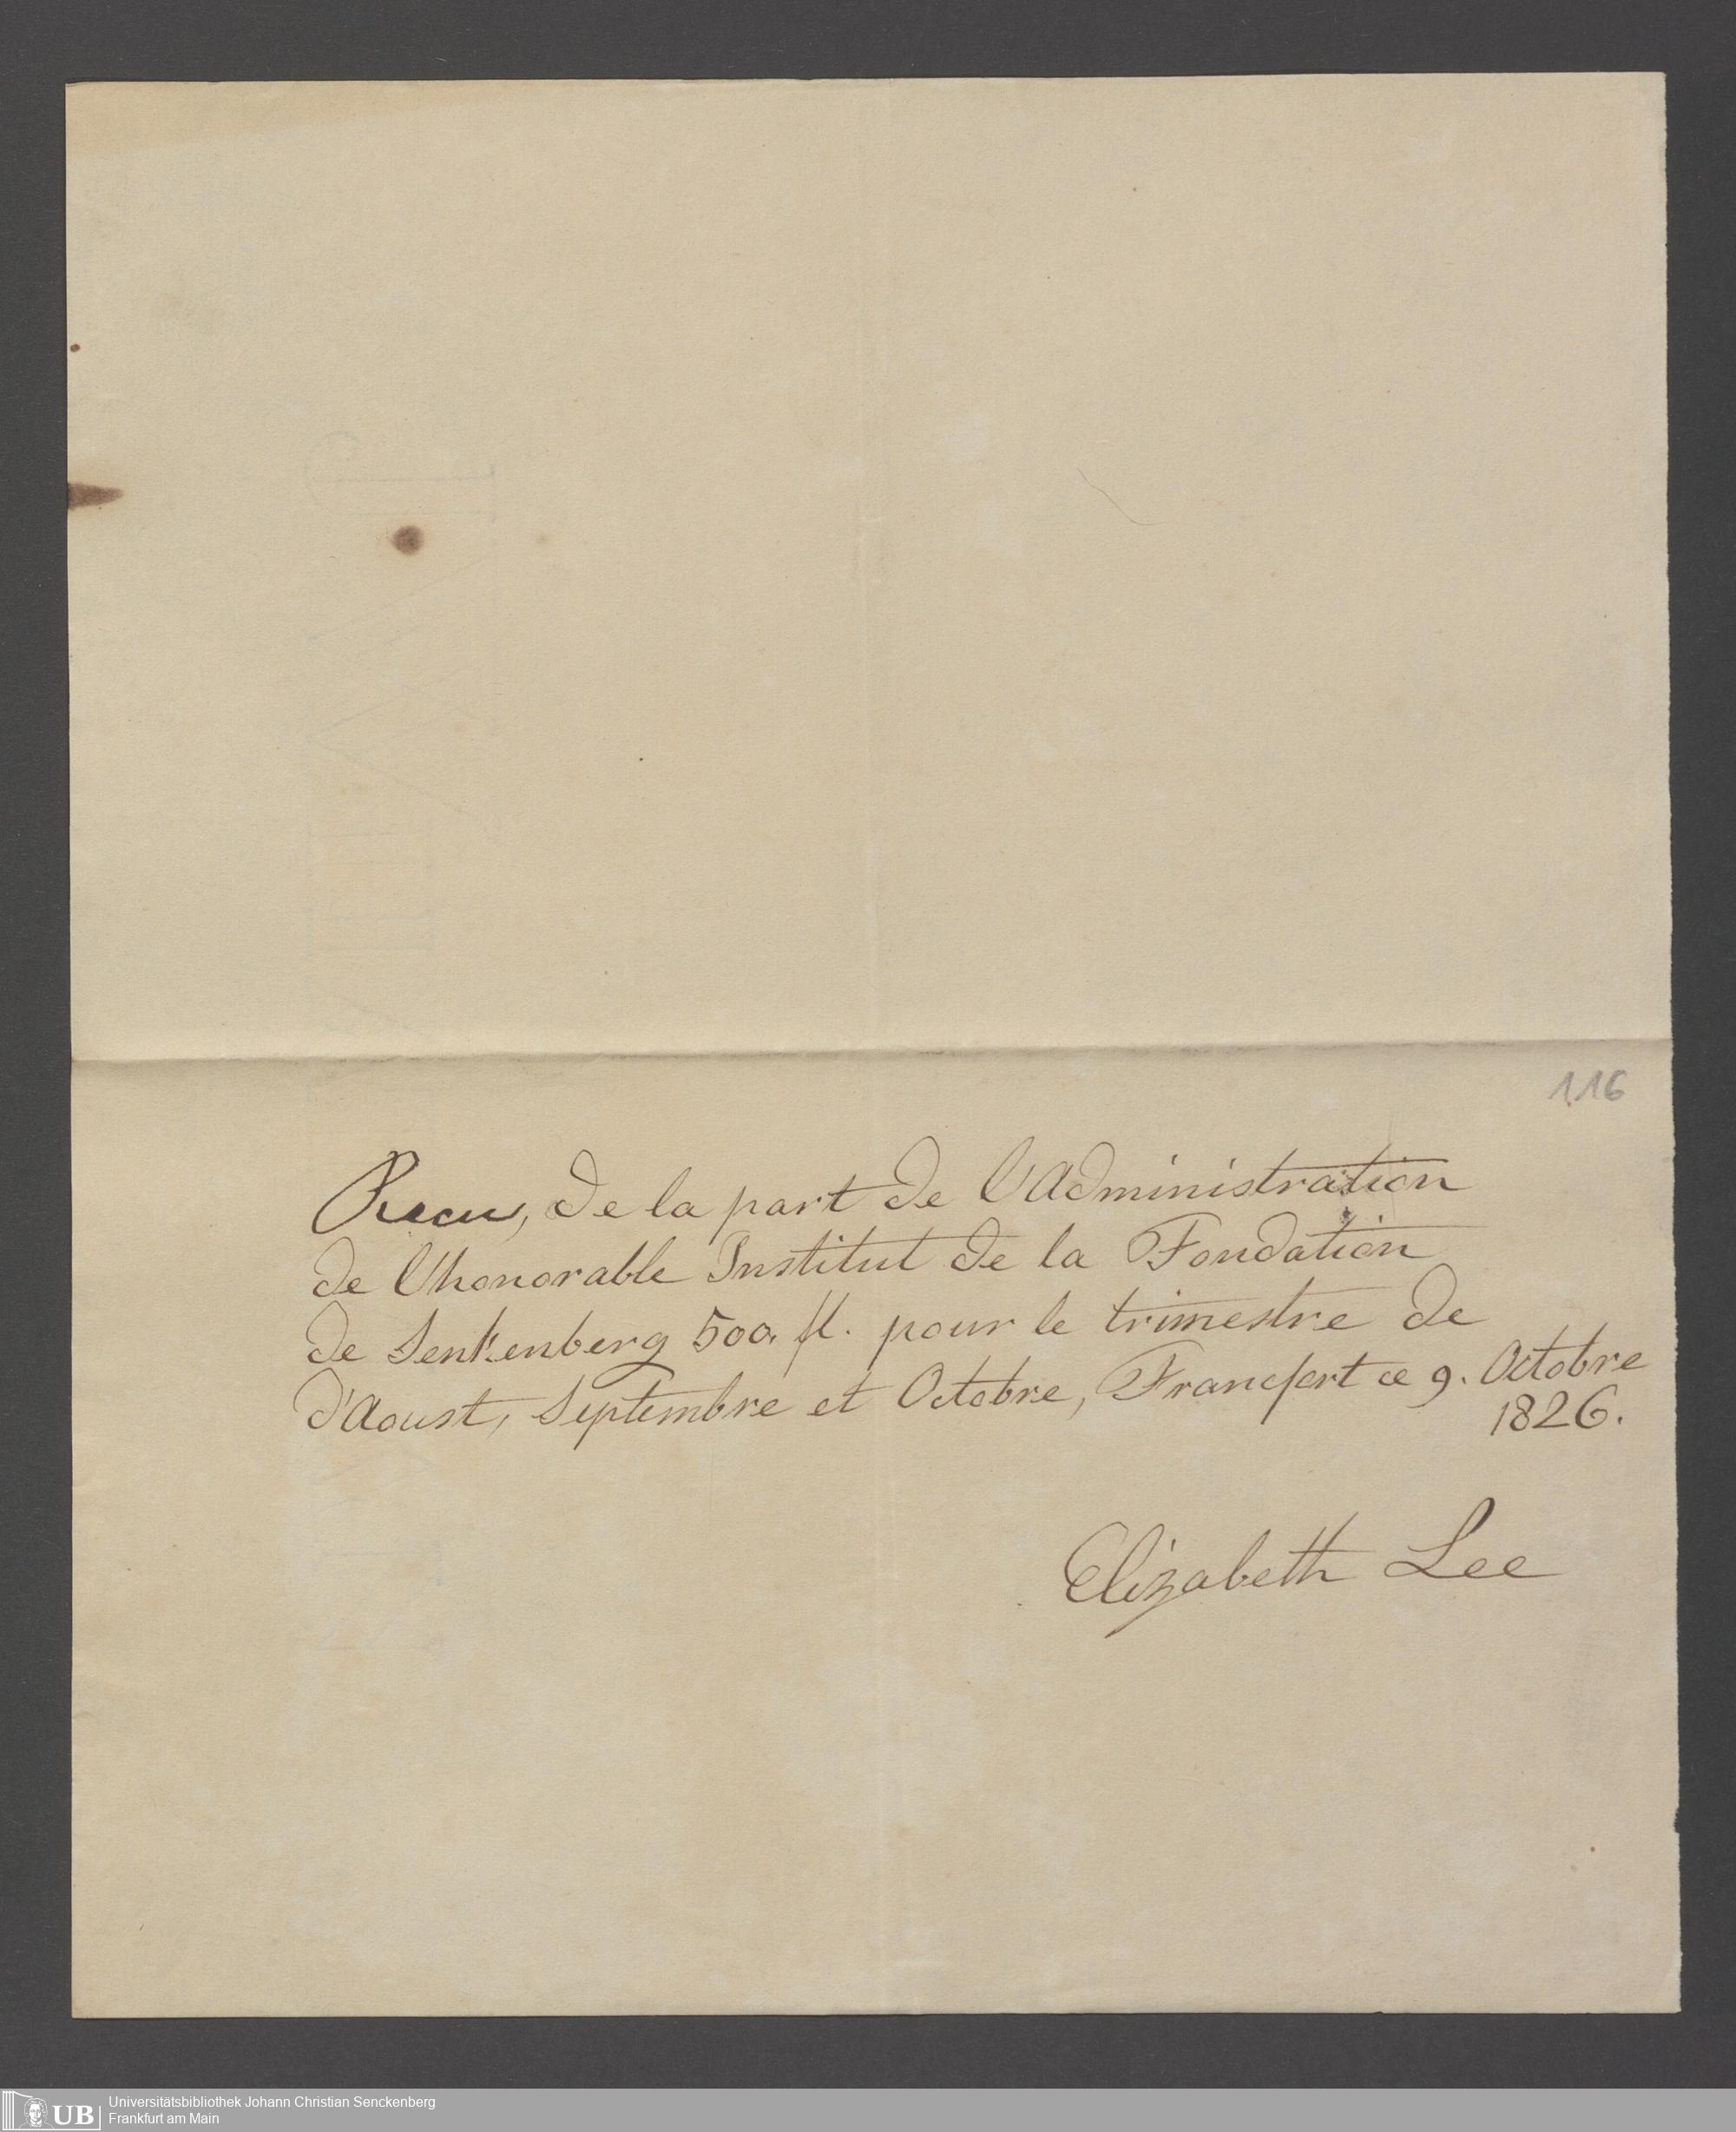 116
Recu, de la part de l'Administration
de l'honorable Institut de la Fondation
de Senkenberg 500. fl. pour le trimestre de
d'Aoust, Septembre et Octobre, Francfort ce 9. Octobre
1826.
Elizabeth Lee
UB
Universitätsbibliothek Johann Christian Senckenberg
Frankfurt am Main